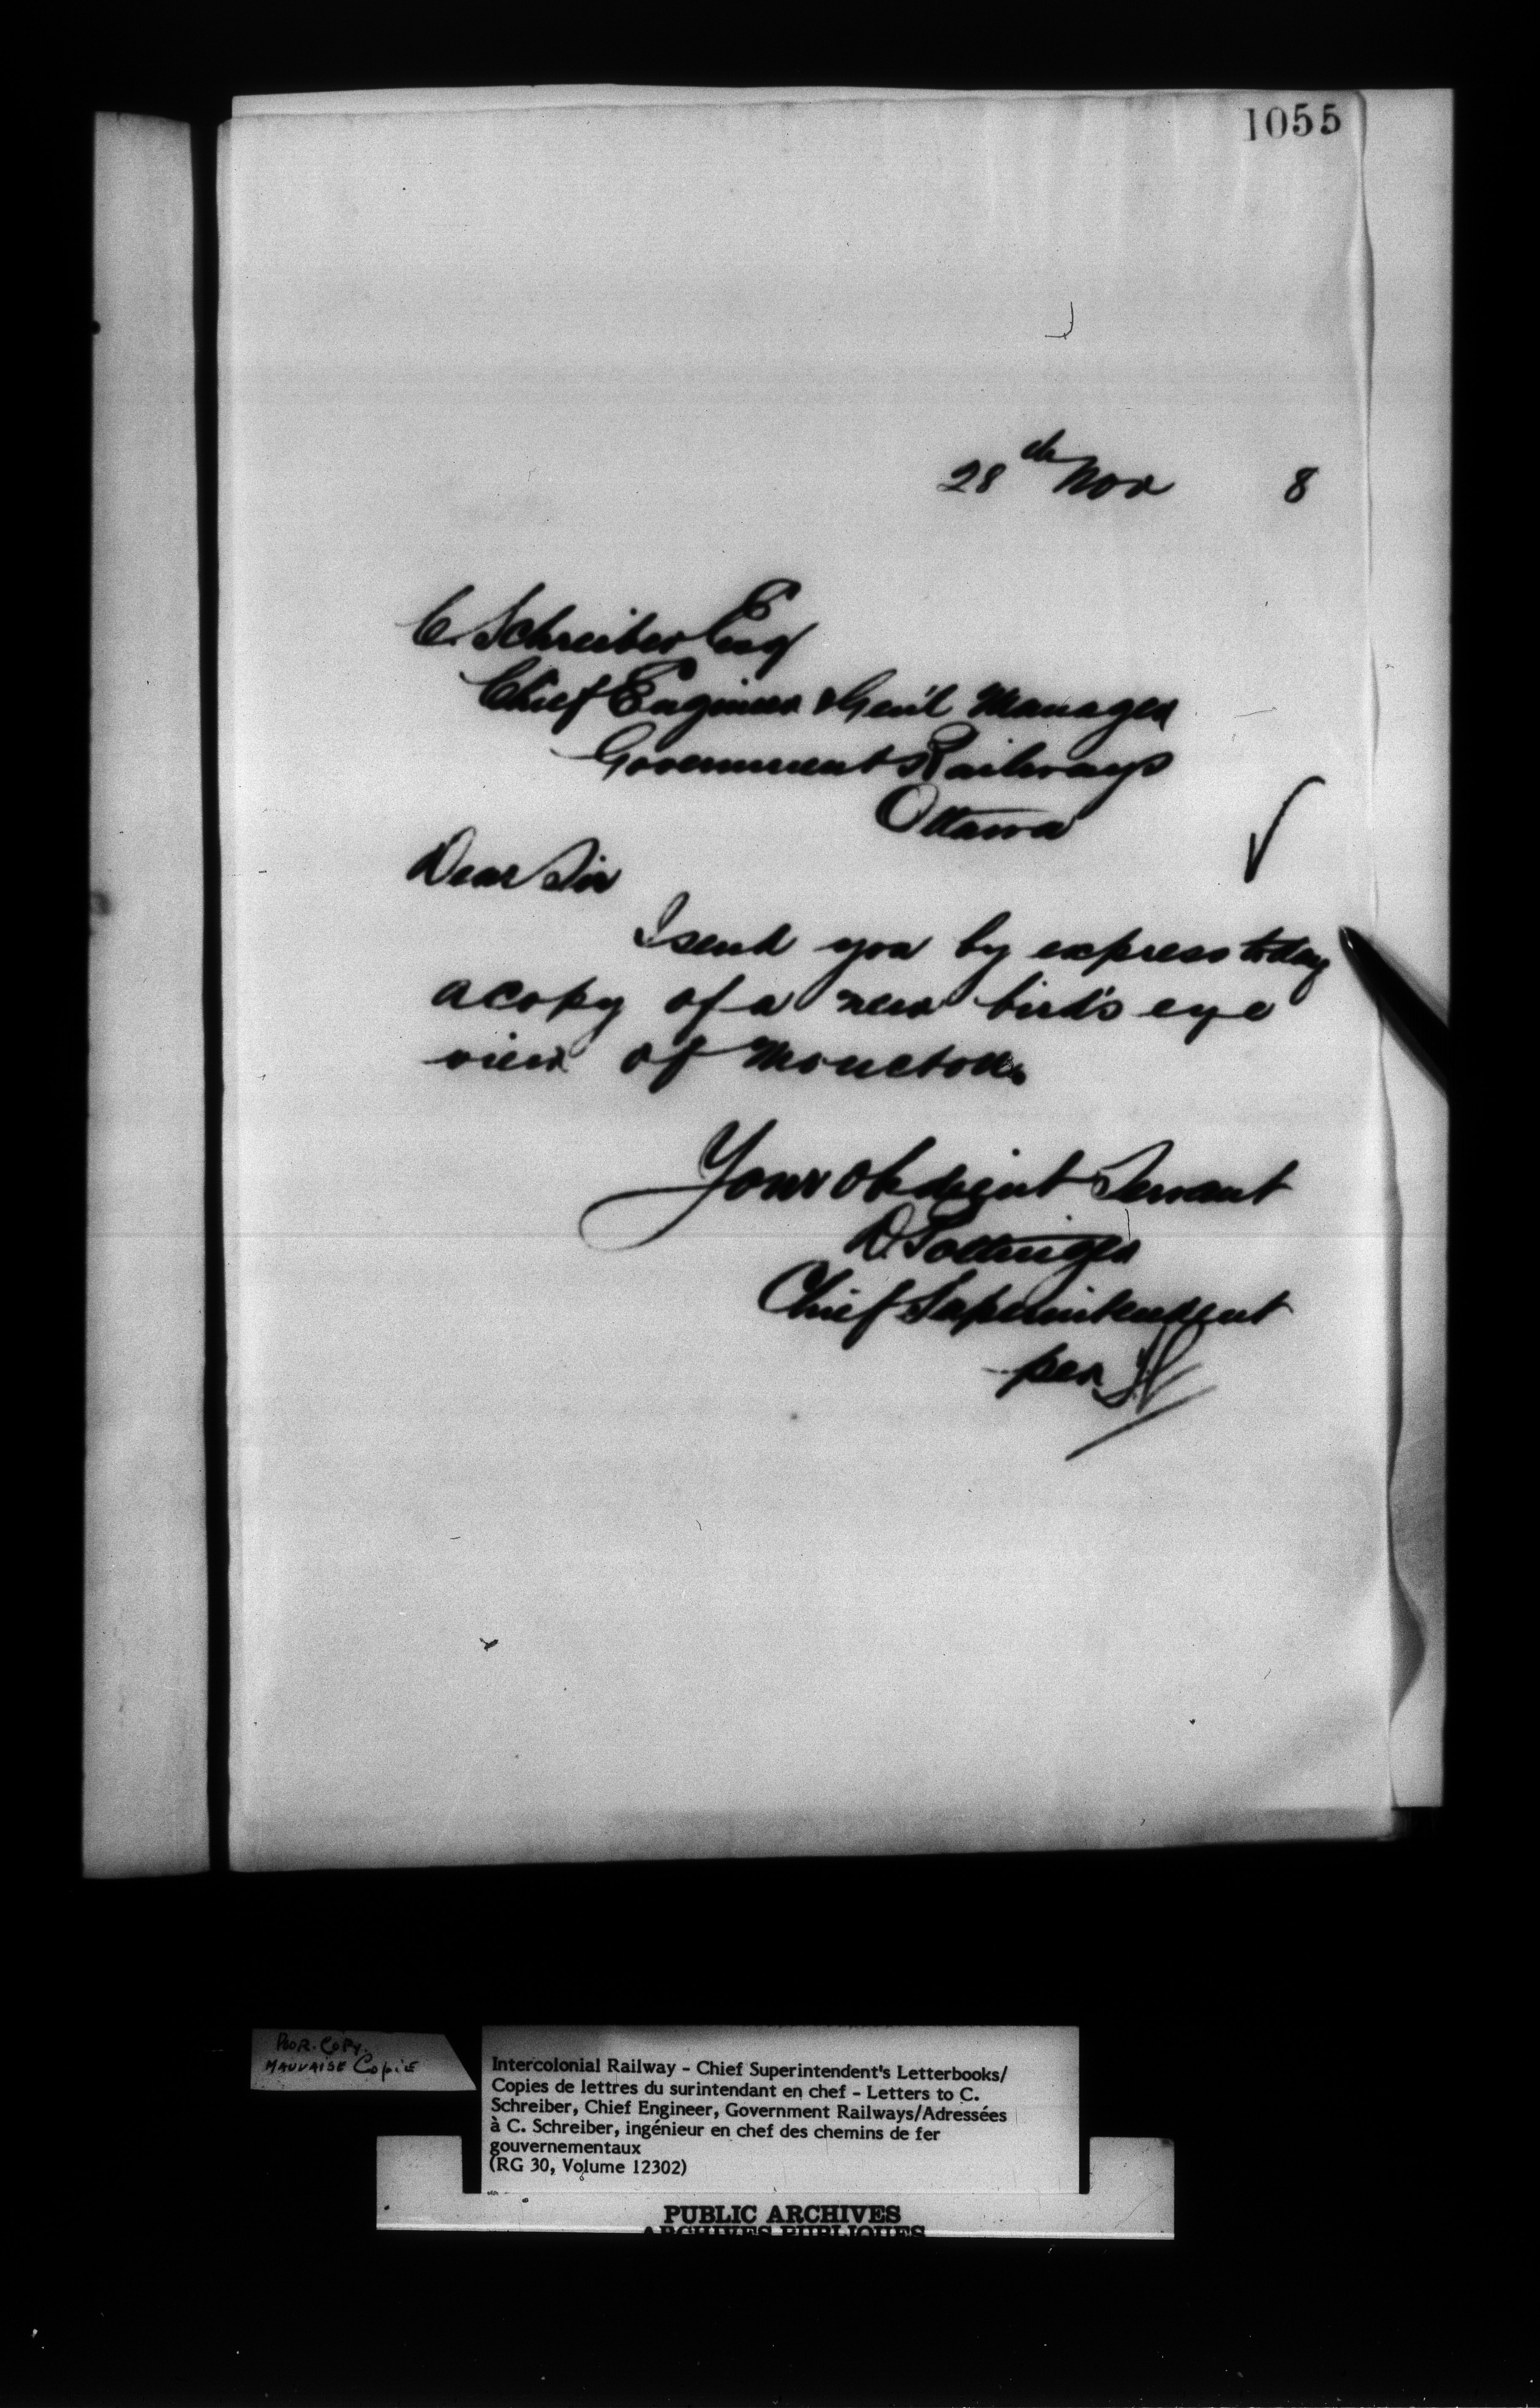 1055
28th Nov 8
C. Schreiber Esq
Chief Engineer & Gen'l Manager
Government Railways
Ottawa
Dear Sir
I send you by express today
a copy of a new bird's eye
view of Moncton.
Your obedient Servant
D. Pottinger
Chief Superintendent
per
POOR. COPY.
MAUVAISE COPIE
Intercolonial Railway - Chief Superintendent's Letterbooks/
Copies de lettres du surintendant en chef - Letters to C.
Schreiber, Chief Engineer, Government Railways/Adressées
à C. Schreiber, ingénieur en chef des chemins de fer
gouvernementaux
(RG 30, Volume 12302)
PUBLIC ARCHIVES
ARCHIVES PUBLIQUES